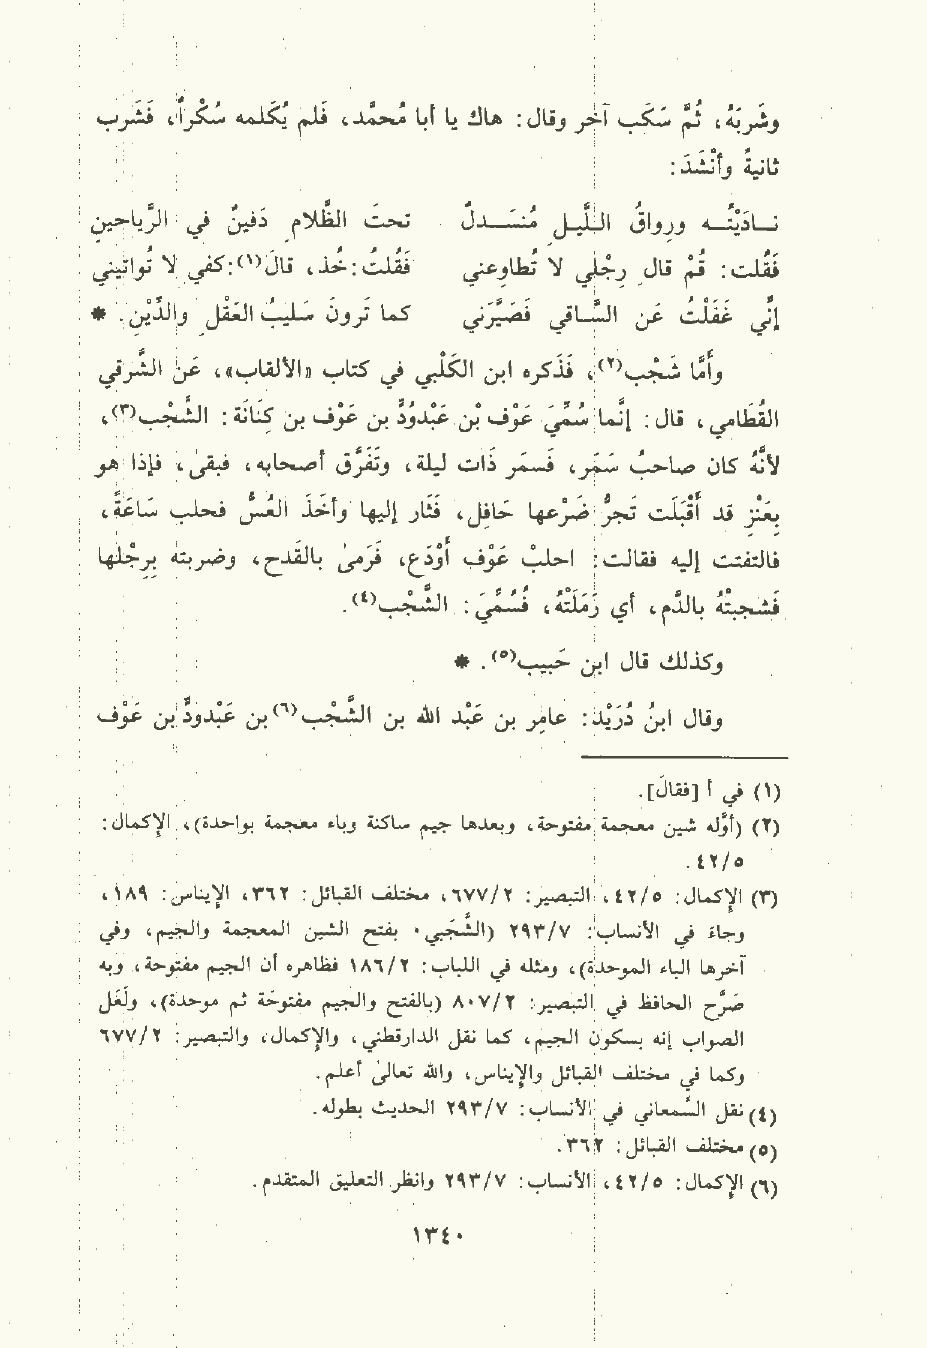 وشَرِبَهُ، ثُمَّ سَكَب آخر وقال: هاك يا أبا مُحمَّد، فلَم يُكَلمه سُكْراً، فَشَرِب
ثانيةً وأنْشَدَ:
نـادَيْتُـــه ورواقُ اللَّيلِ مُنسَـــدلٌ تحتَ الظَّلامِ دَفينٌ في الرَّياحين
فَقُلتُ: قُمْ قالَ رِجْلي لا تُطاوعني فَقُلتُ: خُذ، قالَ(١): كفي لا تُواتيني
إنِّي غَفَلْتُ عَن السَّاقي فَصَيَّرَني كما تَرَونَ سَليبُ العَقْلِ والدِّيْنِ. *
وأمَّا شَجْب(٢)، فَذَكره ابن الكَلْبيّ في كتاب «الألقاب»، عَن الشَّرقي
القُطَامي، قال: إنَّما سُمِّيَ عَوْف بنْ عَبْدُودٍّ بن عَوْف بن كِنَانَة: الشَّجْب(٣)،
لأنَّهُ كان صاحبُ سَمَر، فَسمر ذات ليلة، وتَفَرَّق أصحابه، فبقى، فإذا هو
بعَنْزٍ قد أَقْبَلَت تَجرُّ ضَرْعها حَافل، فَثَار إليها وأخَذَ العُسَّ فحلب سَاعَةً،
فالتفتت إليه فقالت: احلبْ عَوْف أوْدَع، فَرَمىَ بالقَدَح، وضربته برِجْلِها
فشجبتْهُ بالدَّم، أي زَمَّلَتْهُ، فُسُمِّيَ: الشَّجْب(٤).
وكذلك قال ابن حَبيب(٥). *
وقال ابنُ دُرَيْد: عامِر بن عَبْد الله بن الشَّجْب(٦) بن عَبْدودٍّ بن عَوْف
(١) في أ [فقالَ].
(٢) (أوَّله شين معجمة مفتوحة، وبعدها جيم ساكنة وباء معجمة بواحدة)، الإكمال:
٤٢/٥.
(٣) الإكمال: ٤٢/٥، التبصير: ٦٧٧/٢، مختلف القبائل: ٣٦٢، الإيناس: ١٨٩،
وجاءَ في الأنساب: ٢٩٣/٧ (الشَّجَبي، بفتح الشين المعجمة والجيم، وفي
آخرها الباء الموحدة)، ومثله في اللباب: ١٨٦/٢ فظاهره أن الجيم مفتوحة، وبه
صَرَّح الحافظ في التبصير: ٨٠٧/٢ (بالفتح والجيم مفتوحة ثم موحدة)، ولَعَل
الصواب إنه بسكون الجيم، كما نقل الدارقطني، والإكمال، والتبصير: ٦٧٧/٢
وكما في مختلف القبائل والإيناس، والله تعالىَ أعلم.
(٤) نقل السَّمعاني في الأنساب: ٢٩٣/٧ الحديث بطوله.
(٥) مختلف القبائل: ٣٦٢.
(٦) الإكمال: ٤٢/٥، الأنساب: ٢٩٣/٧ وانظر التعليق المتقدم.
١٣٤٠